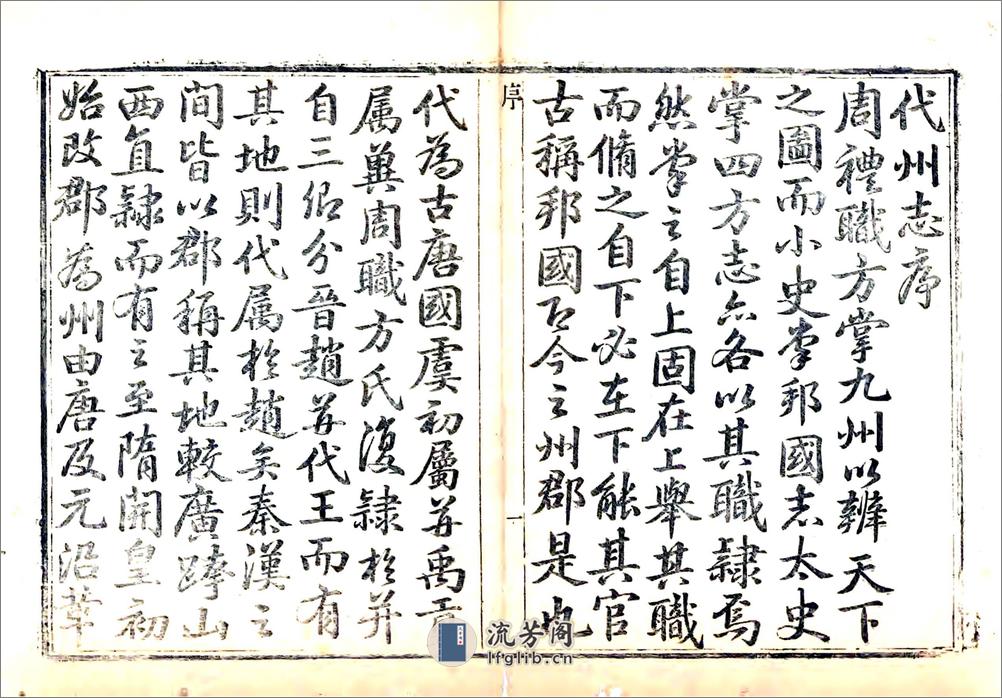 代州志序
周禮職方掌九州以辨天下
之圖而小史掌邦國志太史
掌四方志亦各以其職隷焉
然掌之自上固在上舉其職
而脩之自下必在下能其官
古稱邦國即今之州郡是也
序
一
代為古唐國虞初屬并禹貢
属兾周職方氏復隷於并
自三侭分晉趙并代王而有
其地則代属於趙矣秦漢之
間皆以郡稱其地較廣跨山
西直隷而有之至隋開皇初
始改郡為州由唐及元沿革
流芳阁
lfglib.cn